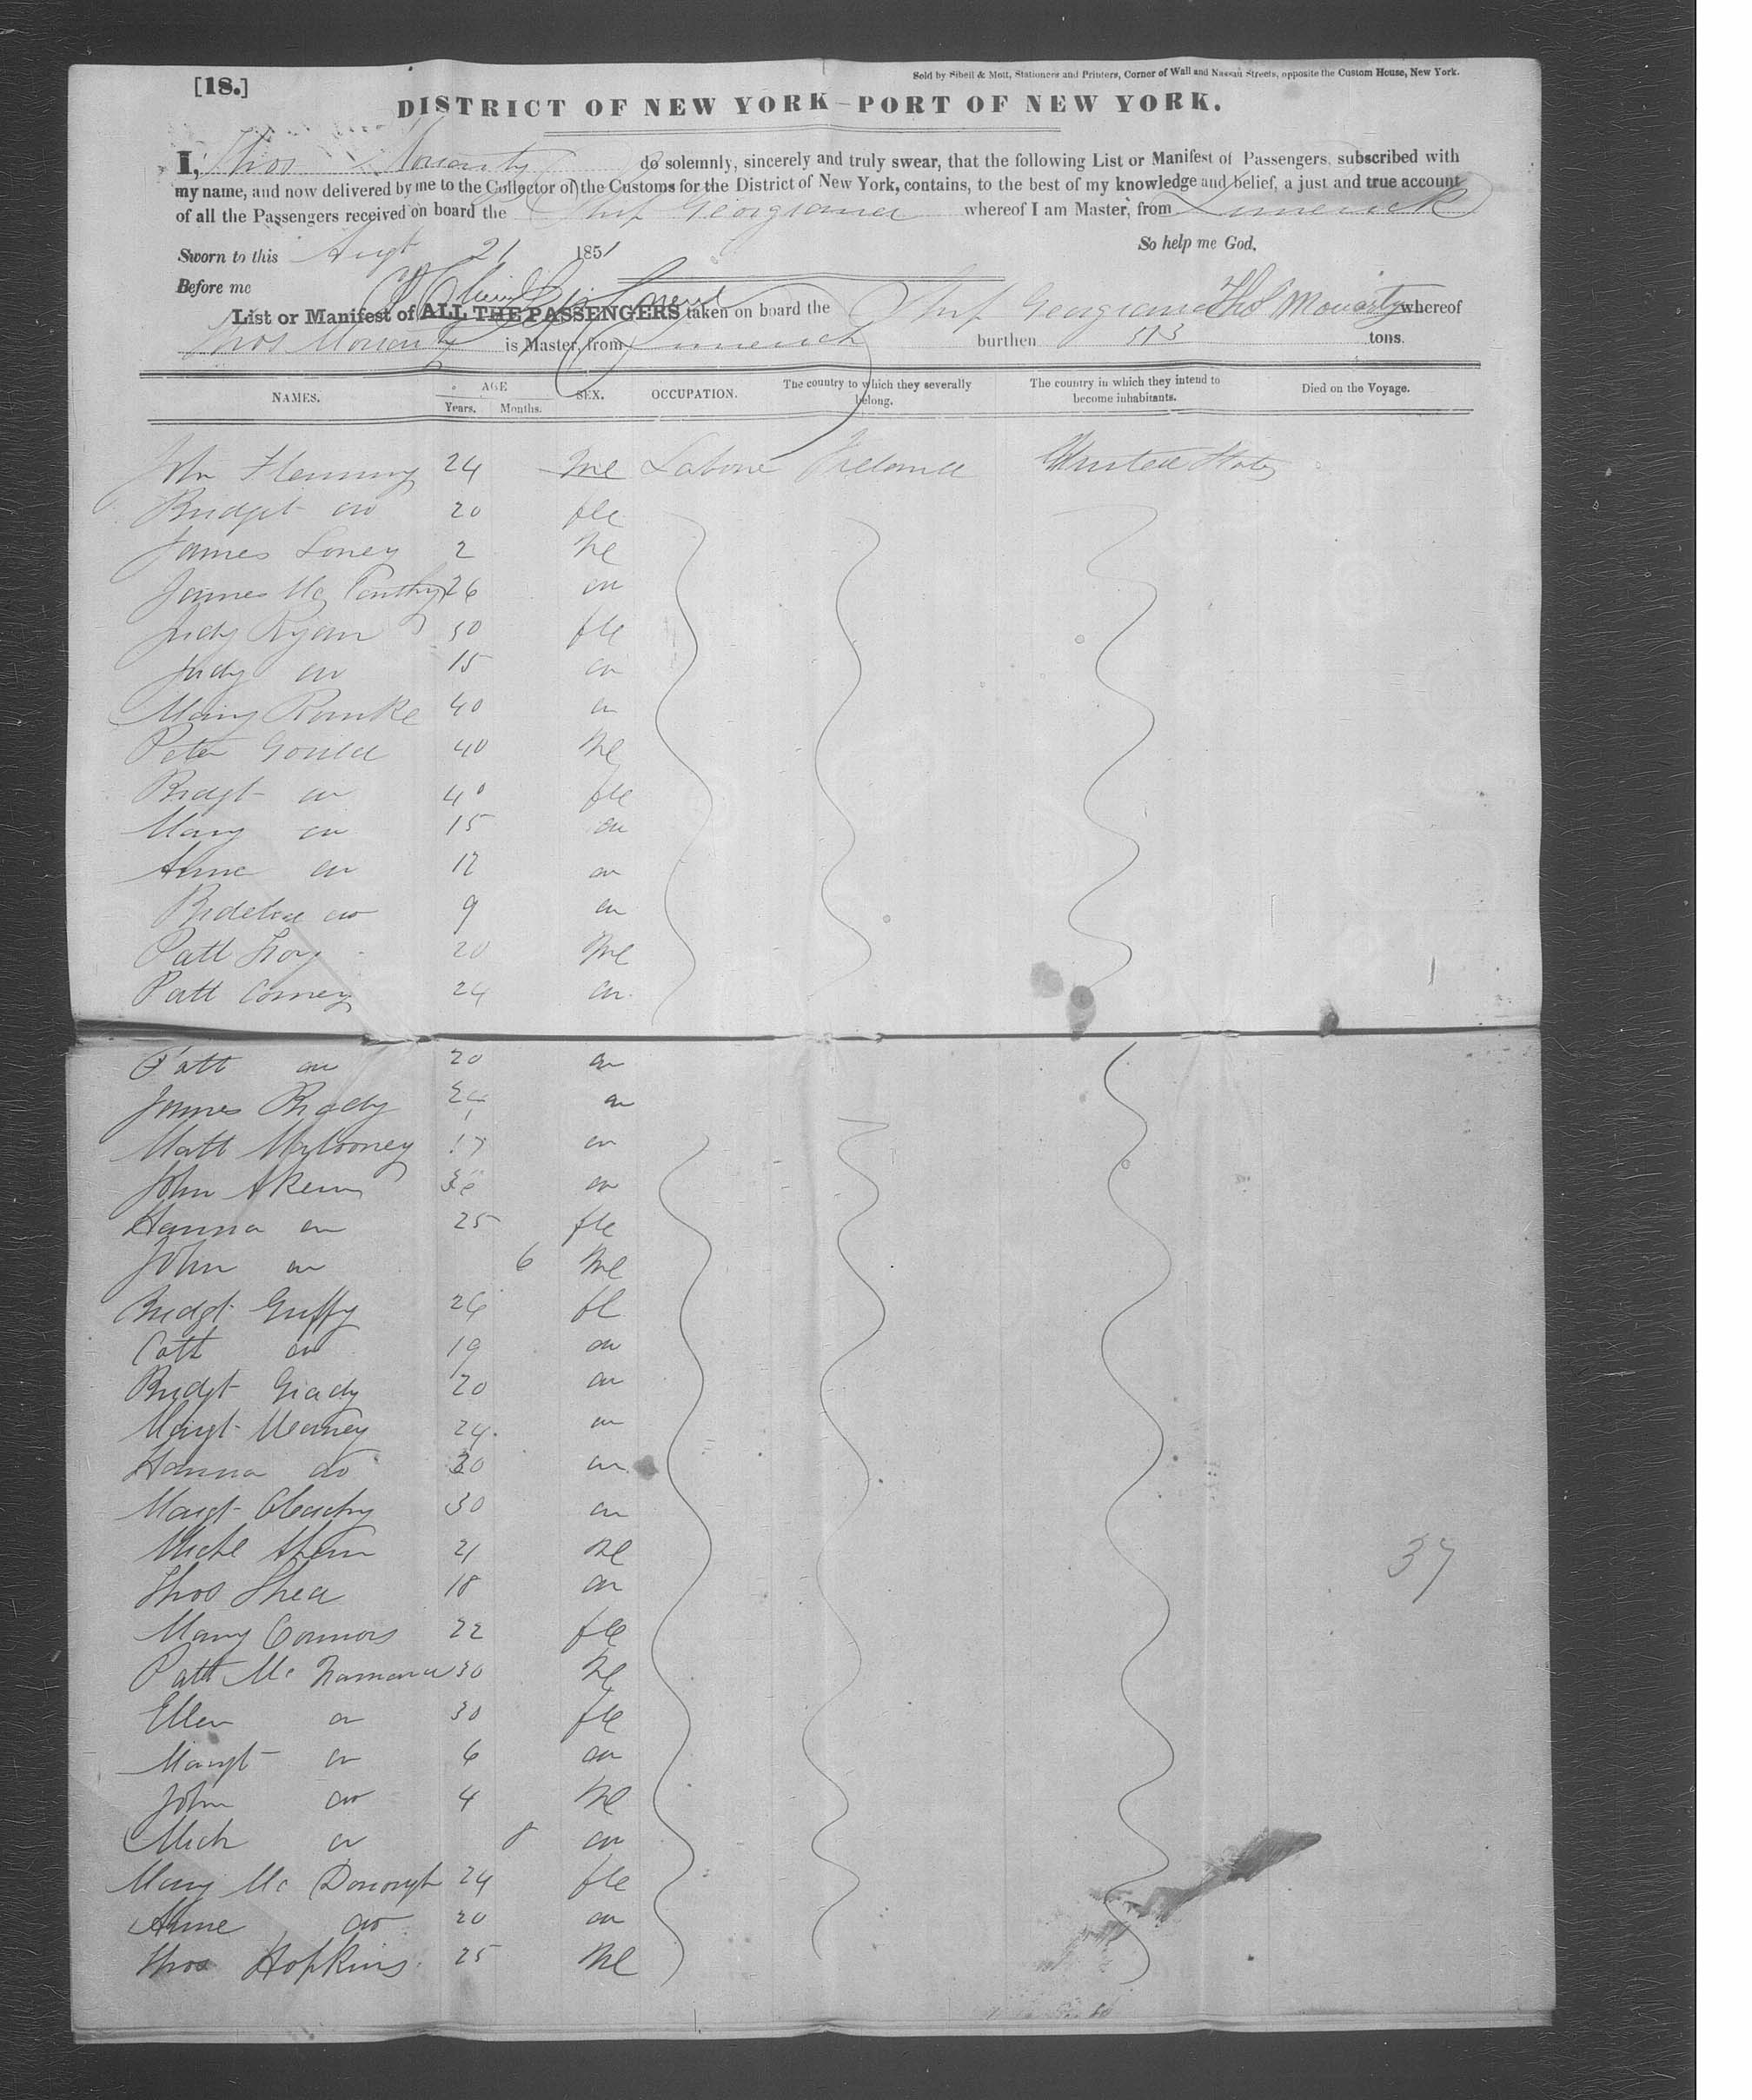 [18.]
Sold by Sibell & Mott, Stationers and Printers, Corner of Wall and Nassau Streets, opposite the Custom House, New York.
DISTRICT OF NEW YORK—PORT OF NEW YORK.
I, Thos Moriarty do solemnly, sincerely and truly swear, that the following List or Manifest of Passengers, subscribed with
my name, and now delivered by me to the Collector of the Customs for the District of New York, contains, to the best of my knowledge and belief, a just and true account
of all the Passengers received on board the Ship Georgiana whereof I am Master, from Limerick
Sworn to this Augt 21 1851 So help me God,
Before me
List or Manifest of ALL THE PASSENGERS taken on board the Ship Georgiana Thos Moriarty whereof
Thos Moriarty is Master, from Limerick burthen 513 tons.
NAMES. AGE Years. Months. SEX. OCCUPATION. The country to which they severally belong. The country in which they intend to become inhabitants. Died on the Voyage.
John Fleming 24 Me Labour Ireland United States
Bridget do 20 fle
James Loney 2 Me
James Mc Carthy 26 do
Judy Ryan 50 fle
Judy do 15 do
Mary Rourke 40 do
Peter Gould 40 Me
Bridgt do 40 fle
Mary do 15 do
Anne do 12 do
do 9 do
Patt 20 Me
Patt 24 do
Patt do 20 do
James Brady 24 do
Matt 17 do
John do
Hanna do 25 fle
John do 6 Me
Bridgt Griffy 26 fl
Cath do 19 do
Bridgt Grady 20 do
Margt Meaney 24 do
Hanna do 30 do
Margt 30 do
Michl Ahern 21 Me
Thos Shea 18 do
Mary Connors 22 fle
Patt Mc Namara 30 Me
Ellen do 30 fle
Margt do 6 do
John do 4 Me
Mich do 8 do
Mary Mc Donough 24 fle
Anne do 20 do
Thos Hopkins 25 Me
37